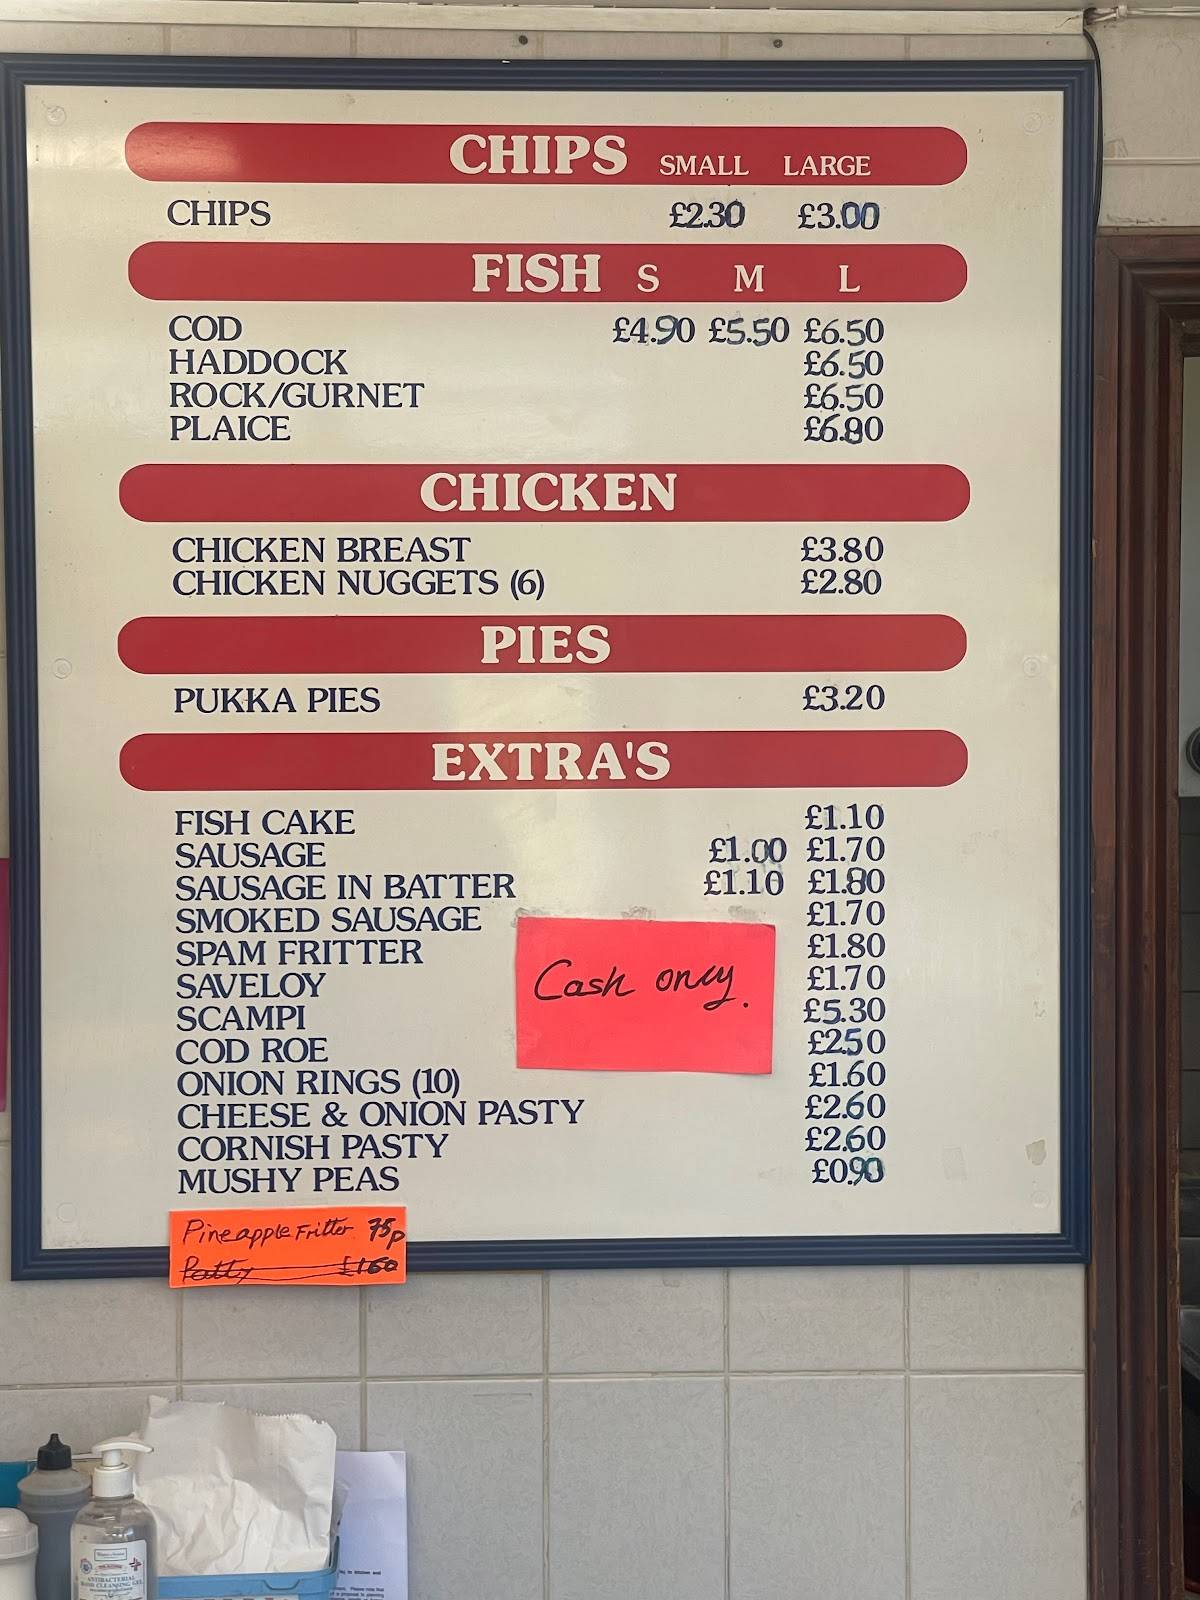 CHIPS SMALL LARGE
CHIPS £2.30 £3.00
FISH S M L
COD £4.90 £5.50 £6.50
HADDOCK £6.50
ROCK/GURNET £6.50
PLAICE £6.80
CHICKEN
CHICKEN BREAST £3.80
CHICKEN NUGGETS (6) £2.80
PIES
PUKKA PIES £3.20
EXTRA'S
FISH CAKE £1.10
SAUSAGE £1.00 £1.70
SAUSAGE IN BATTER £1.10 £1.80
SMOKED SAUSAGE £1.70
SPAM FRITTER £1.80
SAVELOY £1.70
SCAMPI £5.30
COD ROE £2.50
ONION RINGS (10) £1.60
CHEESE & ONION PASTY £2.60
CORNISH PASTY £2.60
MUSHY PEAS £0.90
Cash only.
Pineapple Fritter 75p
Patty £1.60
ANTIBACTERIAL
HAND CLEANSING GEL